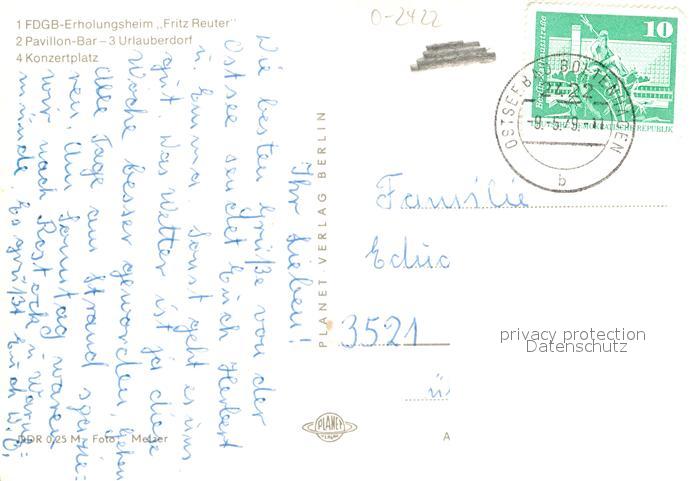 1 FDGB-Erholungsheim „Fritz Reuter"
2 Pavillon-Bar – 3 Urlauberdorf
4 Konzertplatz
0-2422
10
Berlin, Rathausstraße
DEUTSCHE DEMOKRATISCHE REPUBLIK
OSTSEEBAD BOLTENHAGEN
2422
-9.-5.79.-11
b
Ihr Lieben!
Die besten Grüße von der
Ostsee sendet Euch Herbert
u. Emma. Sonst geht es uns
gut. Das Wetter ist ja diese
Woche besser geworden, gehen
alle Tage am Strand
Am Sonntag waren
wir nach Rostock u. Warne=
münde. Es grüßt Euch
PLANET-VERLAG BERLIN
Familie
3521
ü
privacy protection
Datenschutz
PLANET
VERLAG
DDR 0,25 M Foto: Melzer
A